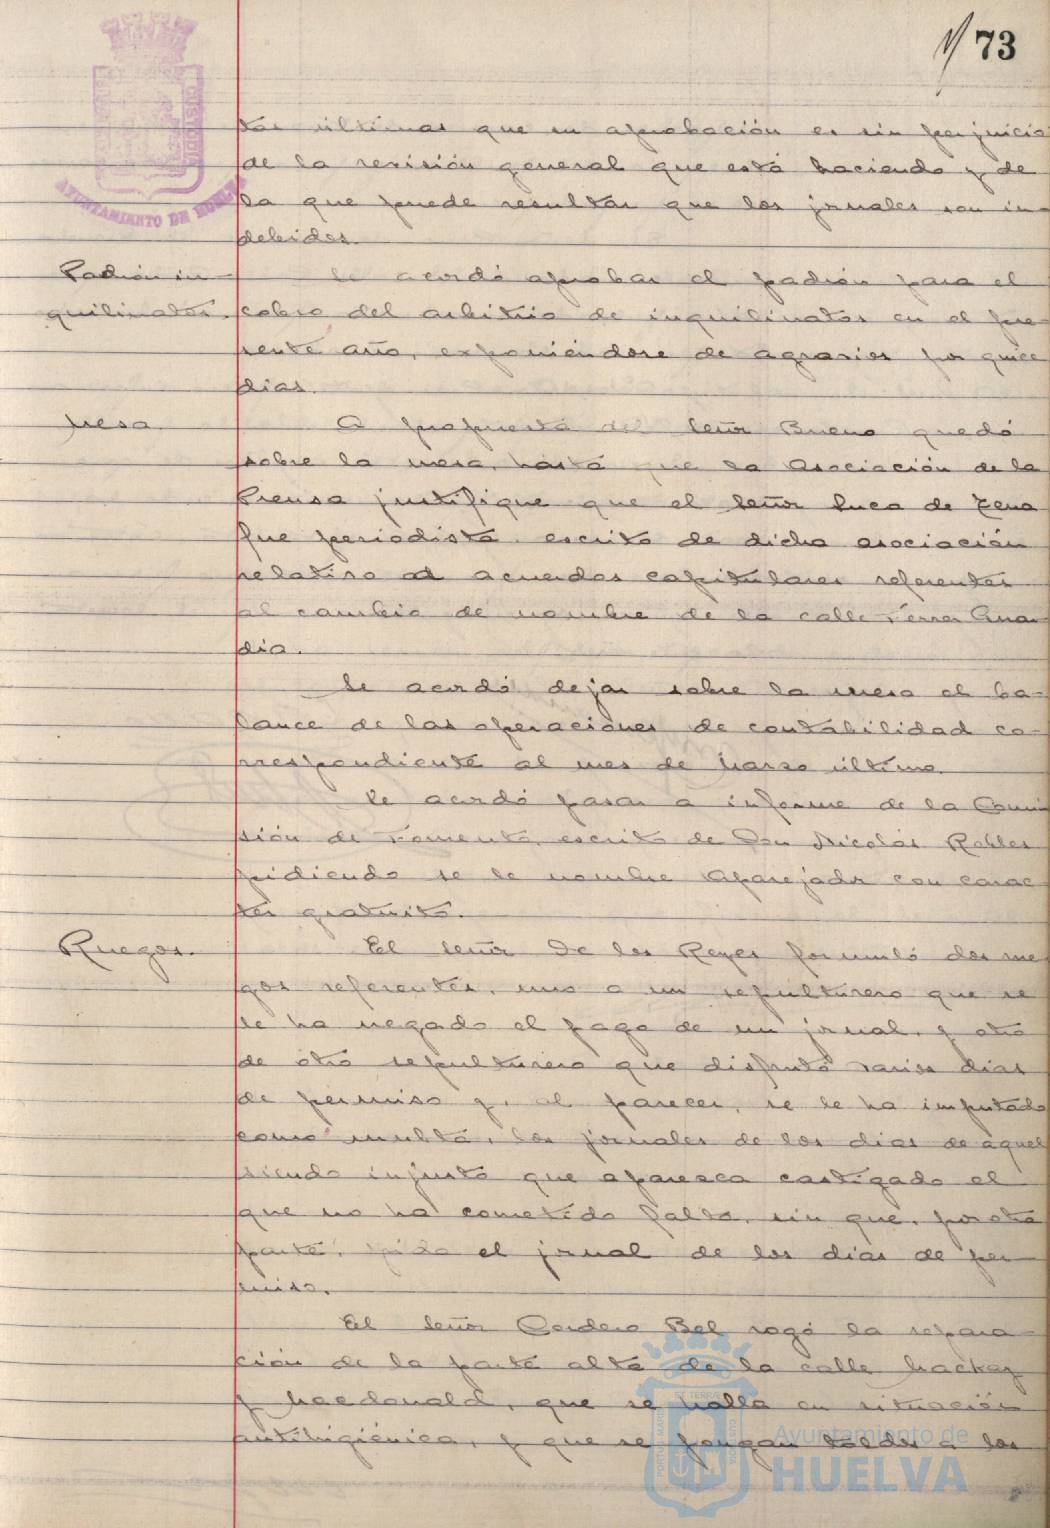 73
tas últimas que su aprobación es sin perjuicio
de la revisión general que está haciendo y de
la que puede resultar que los jornales son in-
debidos.
Padrón in-
quilinatos.
Se acordó aprobar el padrón para el
cobro del arbitrio de inquilinatos en el pre-
sente año, exponiéndose de agravios por quice
días.
Mesa.
A propuesta del Señor Bueno quedó
sobre la mesa, hasta que la Asociación de la
Prensa justifique que el Señor Luca de Tena
fue periodista, escrito de dicha asociación
relativo a acuerdos capitulares referentes
al cambio de nombre de la calle Ferrer Guar-
dia.
Se acordó dejar sobre la mesa el ba-
lance de las operaciones de contabilidad co-
rrespondiente al mes de Marzo último.
Se acordó pasar a informe de la Comi-
sión de Fomento, escrito de Don Nicolás Robles
pidiendo se le nombre Aparejador con carac
ter gratuito.
Ruegos.
El Señor De los Reyes formuló dos rue
gos referentes, uno a un sepulturero que se
le ha negado el pago de un jornal, y otro
de otro sepulturero que disfrutó varios días
de permiso y, al parecer, se le ha imputado
como multa, los jornales de los días de aquel
siendo injusto que aparezca castigado el
que no ha cometido falta, sin que, por otra
parte, pida el jornal de los días de per
miso.
El Señor Cordero Bel rogó la repara-
ción de la parte alta de la calle Mackay
y Macdonald, que se halla en situación
antihigiénica, y que se pongan toldos a los
AYUNTAMIENTO DE HUELVA
Ayuntamiento de
HUELVA